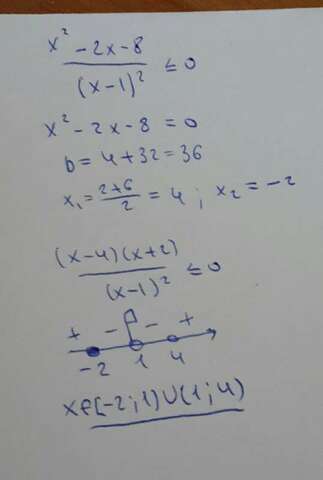 x² - 2x - 8
/(x-1)² ≤ 0
x² - 2x - 8 = 0
D = 4 + 32 = 36
x₁ = (2+6)/2 = 4 ; x₂ = -2
(x-4)(x+2)
/(x-1)² ≤ 0
+ - - +
-2 1 4
x∈[-2;1)∪(1;4)